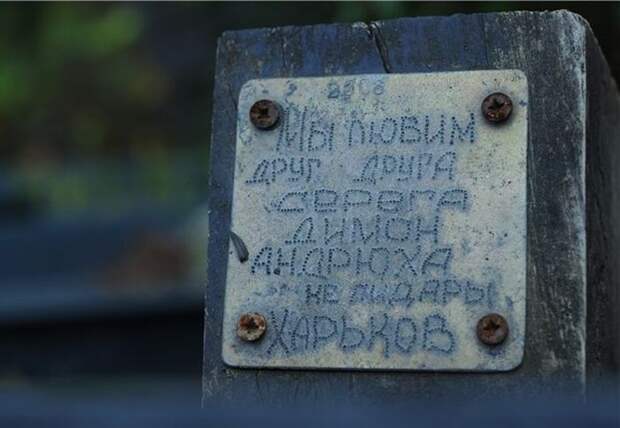 2008
Мы любим
друг друга
Серёга
Димон
Андрюха
не пидары
Харьков